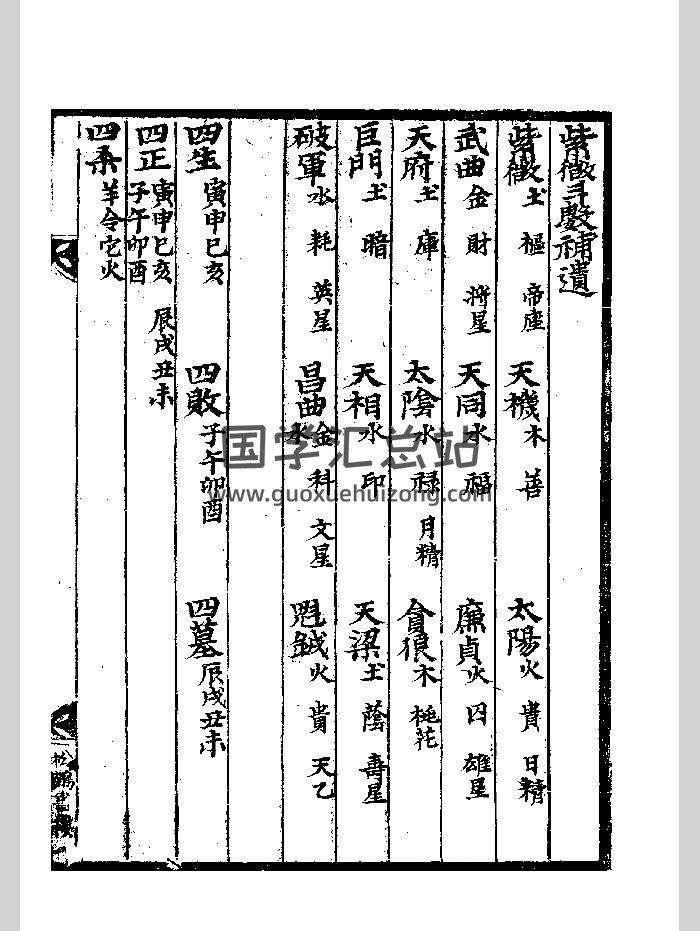 紫微斗數補遺
紫微土 樞 帝座 天機木 善 太陽火 貴 日精
武曲金 財 將星 天同水 福 廉貞火 囚 雄星
天府土 庫 太陰水 祿 月精 貪狼木 桃花
巨門土 暗 天相水 印 天梁土 蔭 壽星
破軍水 耗 英星 昌曲金水 科 文星 魁鉞火 貴 天乙
四生 寅申巳亥 四敗 子午卯酉 四墓 辰戌丑未
四正 寅申巳亥 子午卯酉 辰戌丑未
四杀 羊令它火
国学汇总站
www.guoxuehuizong.com